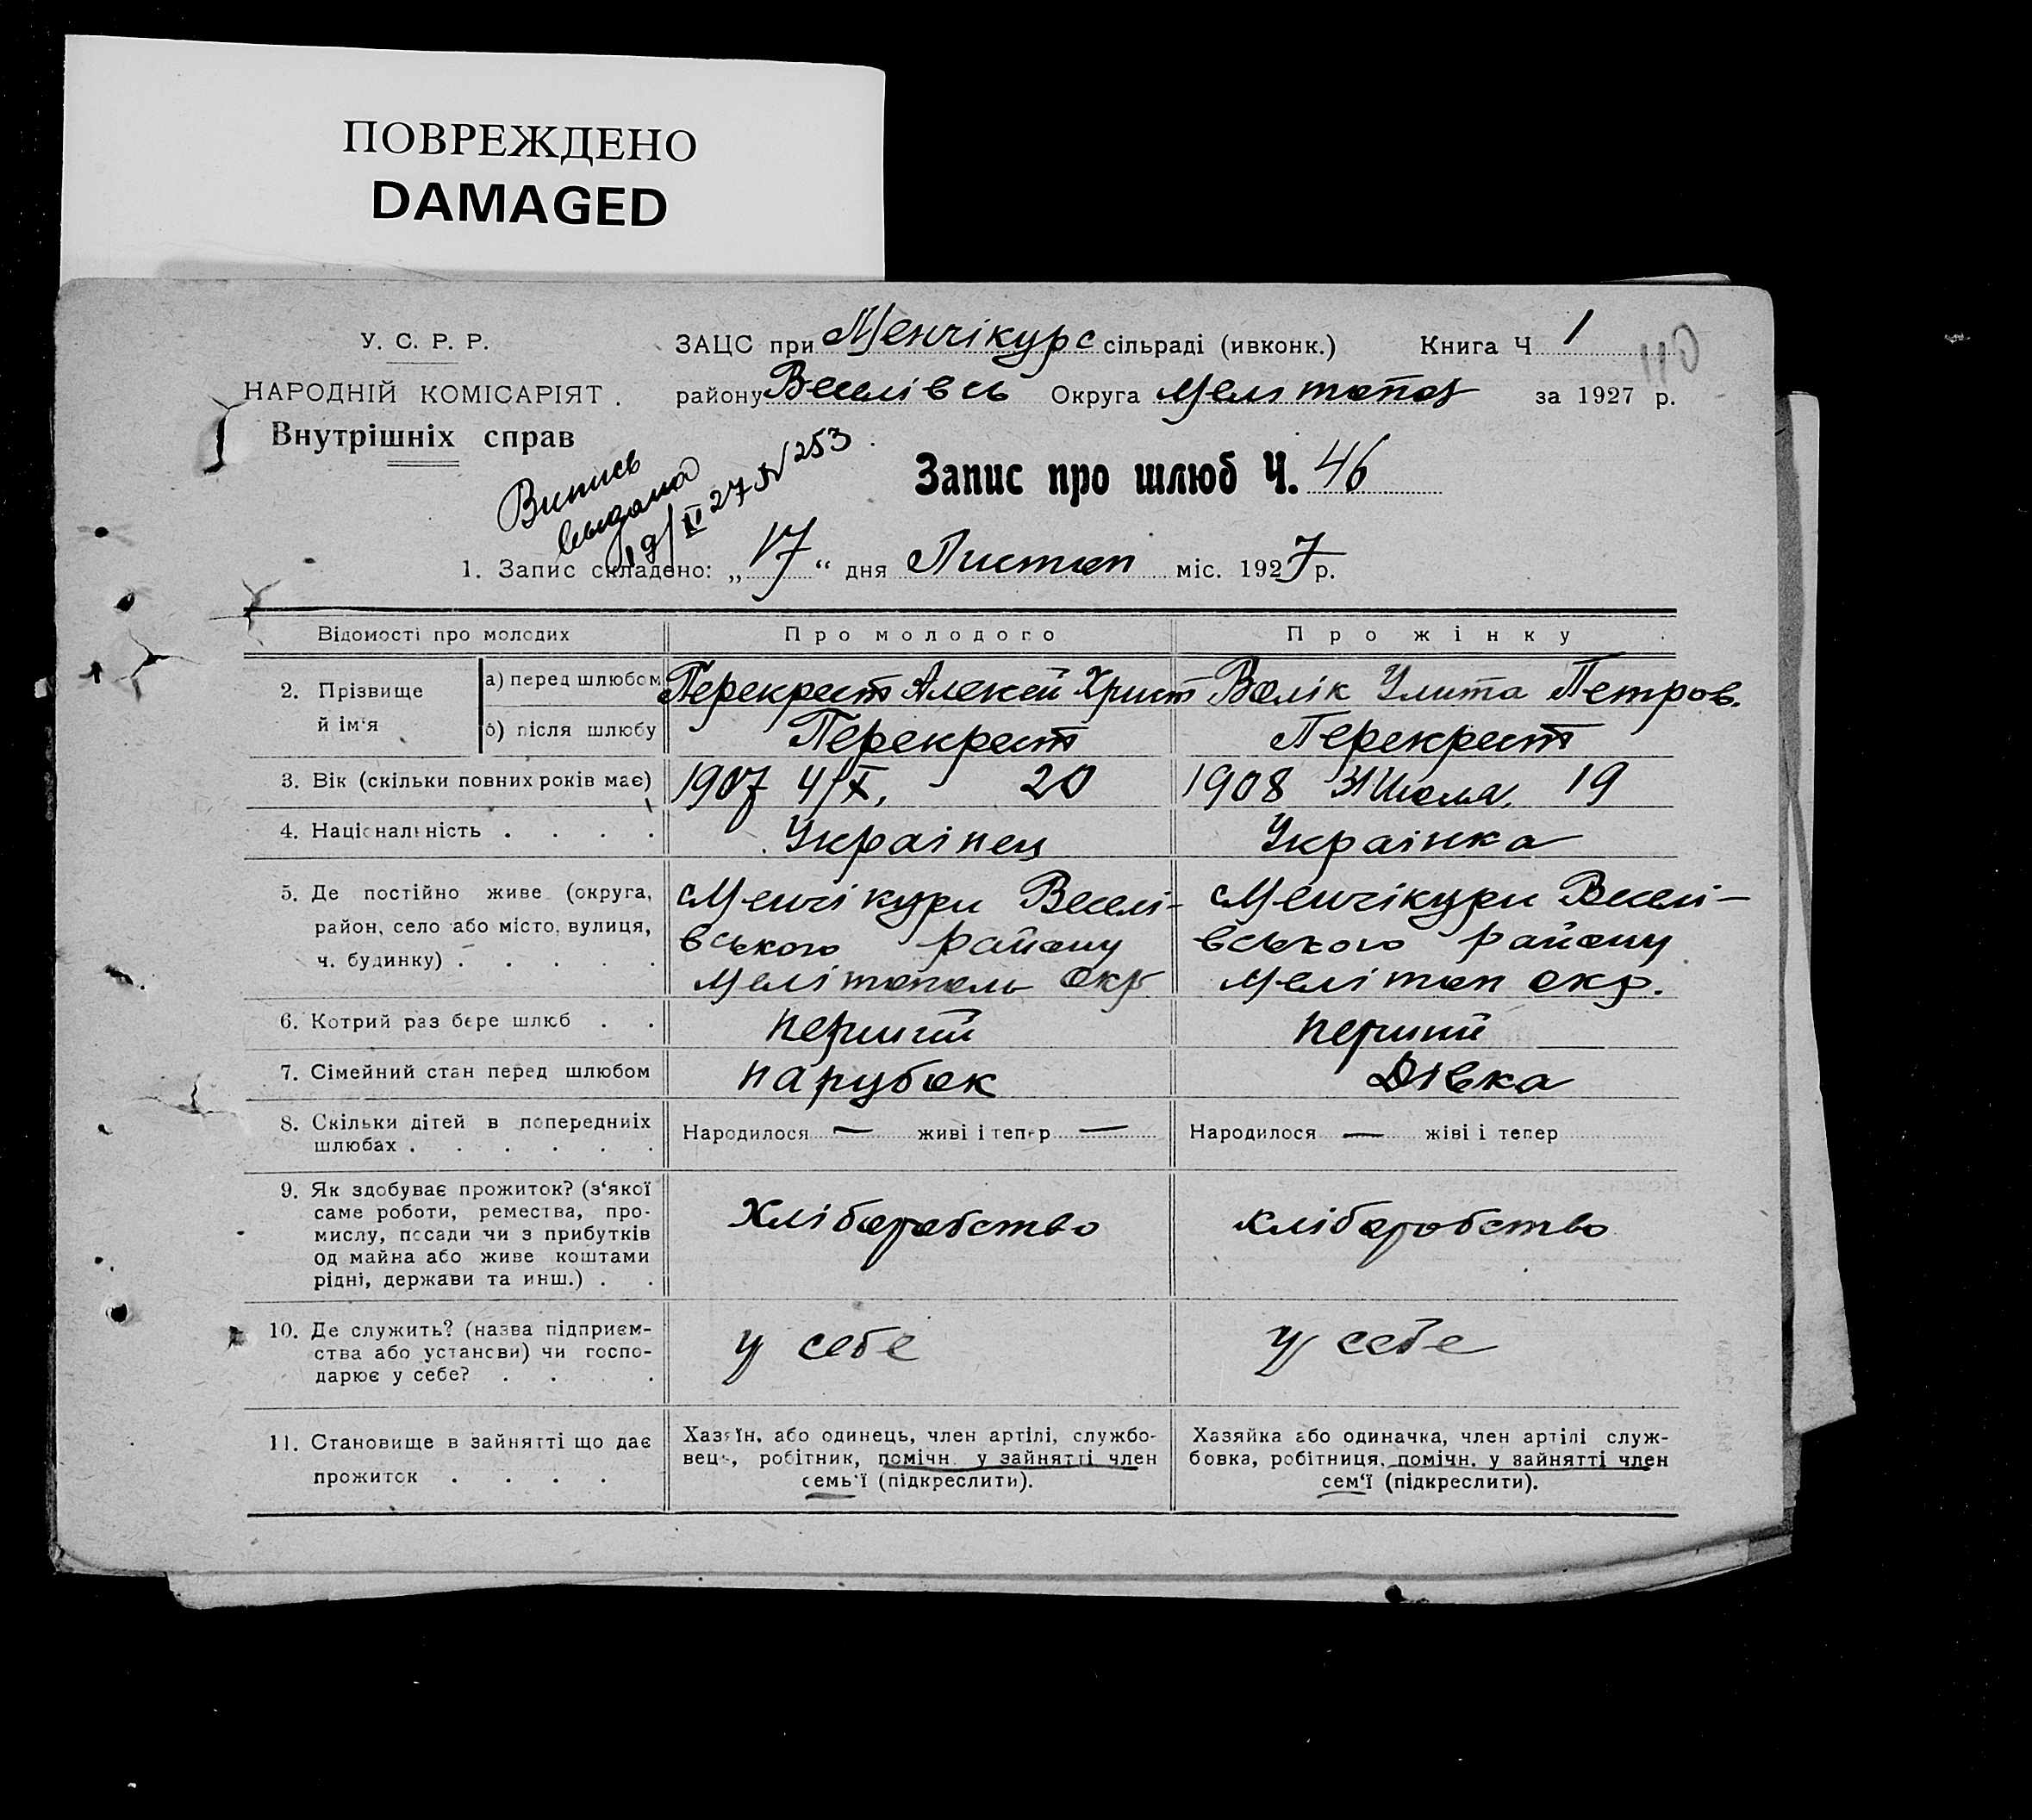 ПОВРЕЖДЕНО
DAMAGED
У. С. Р. Р.
НАРОДНІЙ КОМІСАРІЯТ.
Внутрішніх справ
ЗАЦС при Менчікурс сільраді (ивконк.) Книга Ч 1
110
району Веселівсь Округа Мелітопол за 1927 р.
Випись
выдана
19/II 27 N 253
Запис про шлюб Ч. 46
1. Запис складено: „17“ дня Листоп міс. 1927 р.
Відомості про молодих Про молодого Про жінку
2. Прізвище й ім'я
а) перед шлюбом Перекрест Алексей Христ Волік Улита Петров.
б) після шлюбу Перекрест Перекрест
3. Вік (скільки повних років має) 1907 4/X, 20 1908 31 Июля. 19
4. Національність . . . . Украінец Украінка
5. Де постійно живе (округа, Менчікури Веселі- Менчікури Веселі-
район, село або місто, вулиця, вського району вського району
ч. будинку) . . . . . Мелітополь окр Мелітоп окр.
6. Котрий раз бере шлюб . . перший перший
7. Сімейний стан перед шлюбом парубок Дівка
8. Скільки дітей в попередніх Народилося — живі і тепер — Народилося — жіві і тепер
шлюбах . . . . . .
9. Як здобуває прожиток? (з'якої
саме роботи, ремества, про-
мислу, посади чи з прибутків Хліборобство хліборобство
од майна або живе коштами
рідні, держави та инш.) . .
10. Де служить? (назва підприєм-
ства або установи) чи госпо- у себе у себе
дарює у себе? . . .
11. Становище в зайнятті що дає
прожиток . . . .
Хазяїн, або одинець, член артілі, службо-
вець, робітник, помічн. у зайнятті член
семь'ї (підкреслити).
Хазяйка або одиначка, член артілі служ-
бовка, робітниця, помічн. у зайнятті член
сем'ї (підкреслити).